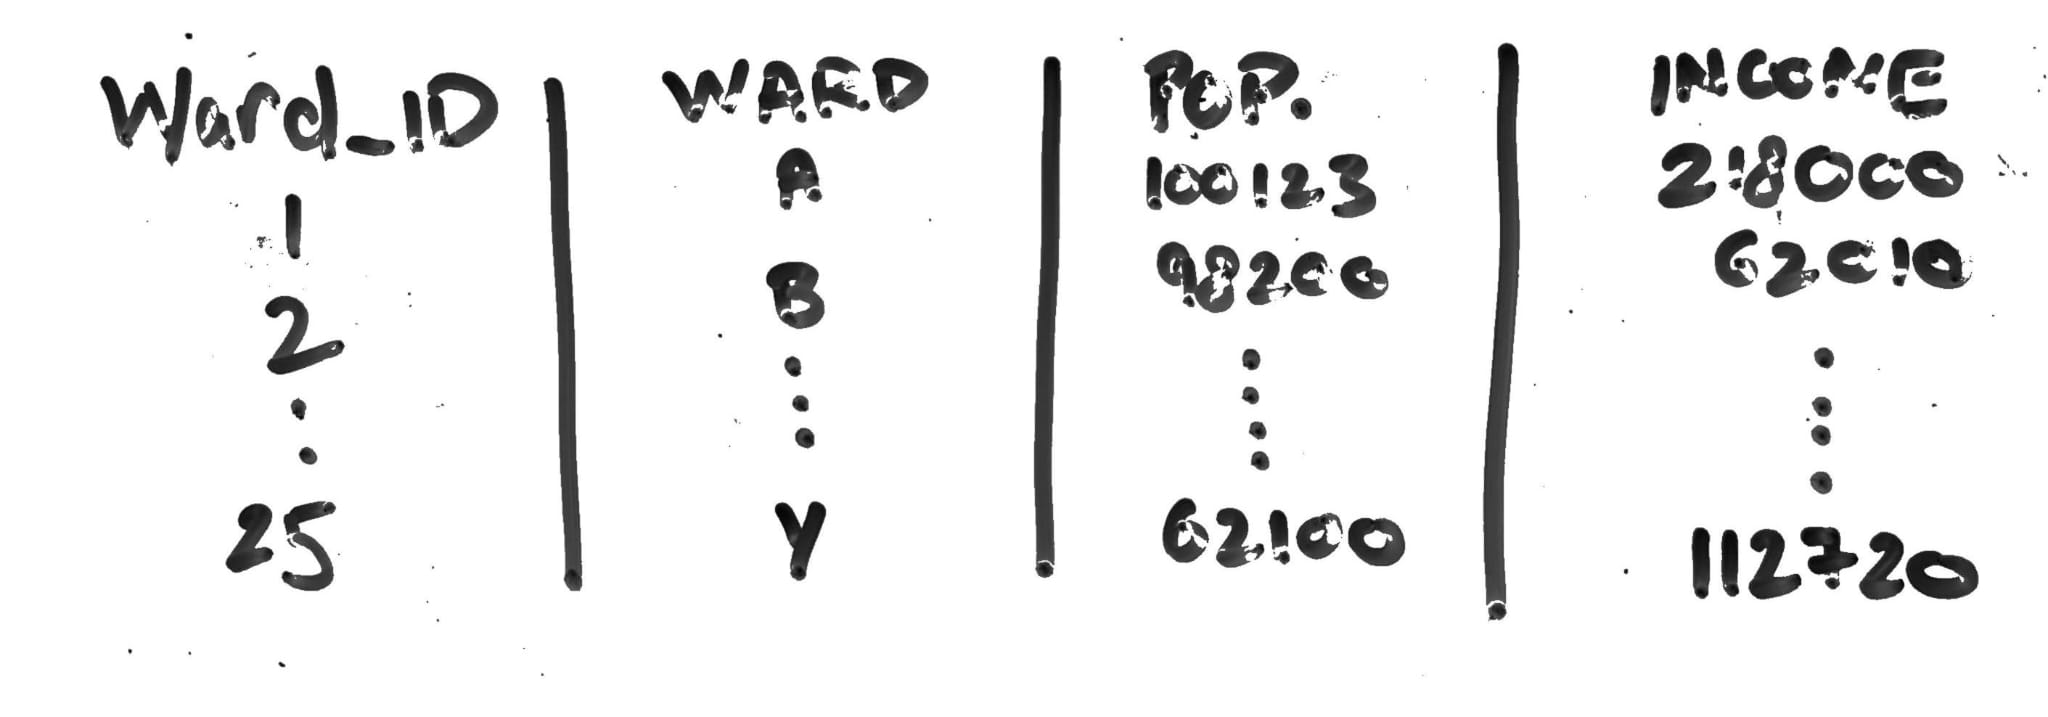 Ward_ID WARD POP. INCOME
1 A 100123 218000
2 B 98200 62010
25 Y 62100 112720